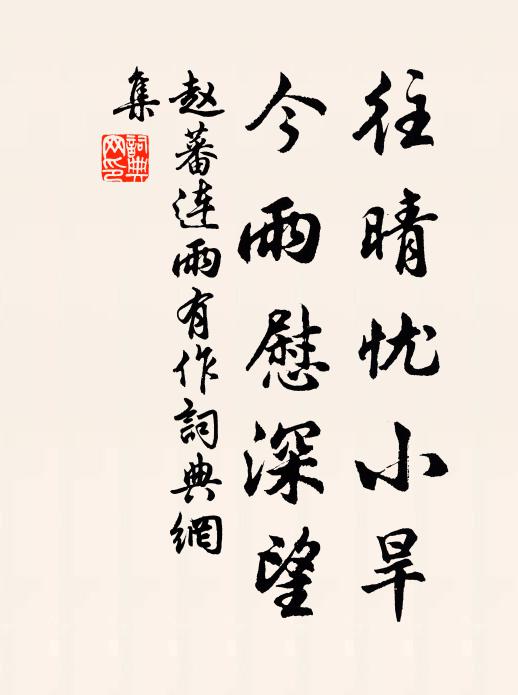 往晴忧小旱
今雨慰深望
赵蕃连雨有作詞典網
集
詞典网印